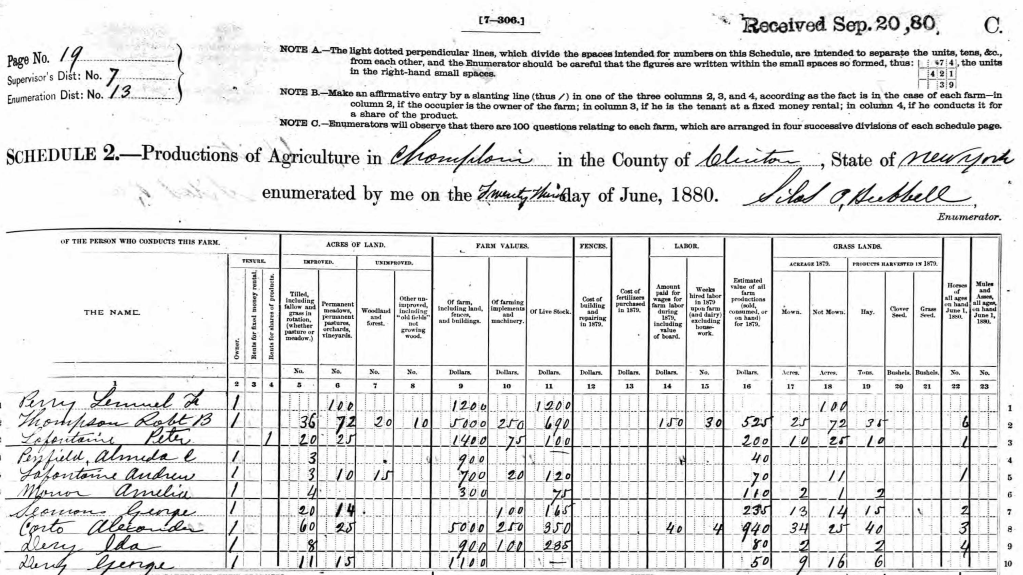 [7–306.]
Received Sep. 20, 80 C.
Page No. 19
Supervisor's Dist: No. 7
Enumeration Dist: No. 13
NOTE A.—The light dotted perpendicular lines, which divide the spaces intended for numbers on this Schedule, are intended to separate the units, tens, &c.,
from each other, and the Enumerator should be careful that the figures are written within the small spaces so formed, thus: 674, the units
in the right-hand small spaces. 421
39
NOTE B.—Make an affirmative entry by a slanting line (thus /) in one of the three columns 2, 3, and 4, according as the fact is in the case of each farm—in
column 2, if the occupier is the owner of the farm; in column 3, if he is the tenant at a fixed money rental; in column 4, if he conducts it for
a share of the product.
NOTE C.—Enumerators will observe that there are 100 questions relating to each farm, which are arranged in four successive divisions of each schedule page.
SCHEDULE 2.—Productions of Agriculture in Champlain in the County of Clinton, State of New York
enumerated by me on the Twenty third day of June, 1880. Silas O. Hubbell,
Enumerator.
OF THE PERSON WHO CONDUCTS THIS FARM. ACRES OF LAND. FARM VALUES. FENCES. LABOR. GRASS LANDS.
TENURE. IMPROVED. UNIMPROVED. ACREAGE 1879. PRODUCTS HARVESTED IN 1879.
THE NAME.
Owner.
Rents for fixed money rental.
Rents for shares of products.
Tilled, including fallow and grass in rotation, (whether pasture or meadow.)
Permanent meadows, permanent pastures, orchards, vineyards.
Woodland and forest.
Other unimproved, including "old fields" not growing wood.
Of farm, including land, fences, and buildings.
Of farming implements and machinery.
Of Live Stock.
Cost of building and repairing in 1879.
Cost of fertilizers purchased in 1879.
Amount paid for wages for farm labor during 1879, including value of board.
Weeks hired labor in 1879 upon farm (and dairy) excluding housework.
Estimated value of all farm productions (sold, consumed, or on hand) for 1879.
Mown.
Not Mown.
Hay.
Clover Seed.
Grass Seed.
Horses of all ages on hand June 1, 1880.
Mules and Asses, all ages on hand June 1, 1880.
No. No. No. No. Dollars. Dollars. Dollars. Dollars. Dollars. Dollars. No. Dollars. Acres. Acres. Tons. Bushels. Bushels. No. No.
1 2 3 4 5 6 7 8 9 10 11 12 13 14 15 16 17 18 19 20 21 22 23
Perry Lemuel 1 100 1200 1200 100 1
Thompson Robt B 1 36 72 20 10 5000 250 690 150 30 525 25 72 35 6 2
Lafontaine Peter 1 20 25 1400 75 100 200 10 25 10 1 3
Penfield, Almeda C 1 3 900 40 4
Lafontaine Andrew 1 3 10 15 700 20 120 70 11 1 5
Amelia 1 4 300 75 110 2 1 2 6
George 1 20 14 100 165 235 13 14 15 2 7
Alexander 1 60 25 5000 250 350 40 4 940 34 25 40 3 8
Dery Ida 1 8 900 100 235 80 2 2 4 9
Dery George 1 11 15 1100 — 50 9 16 6 10